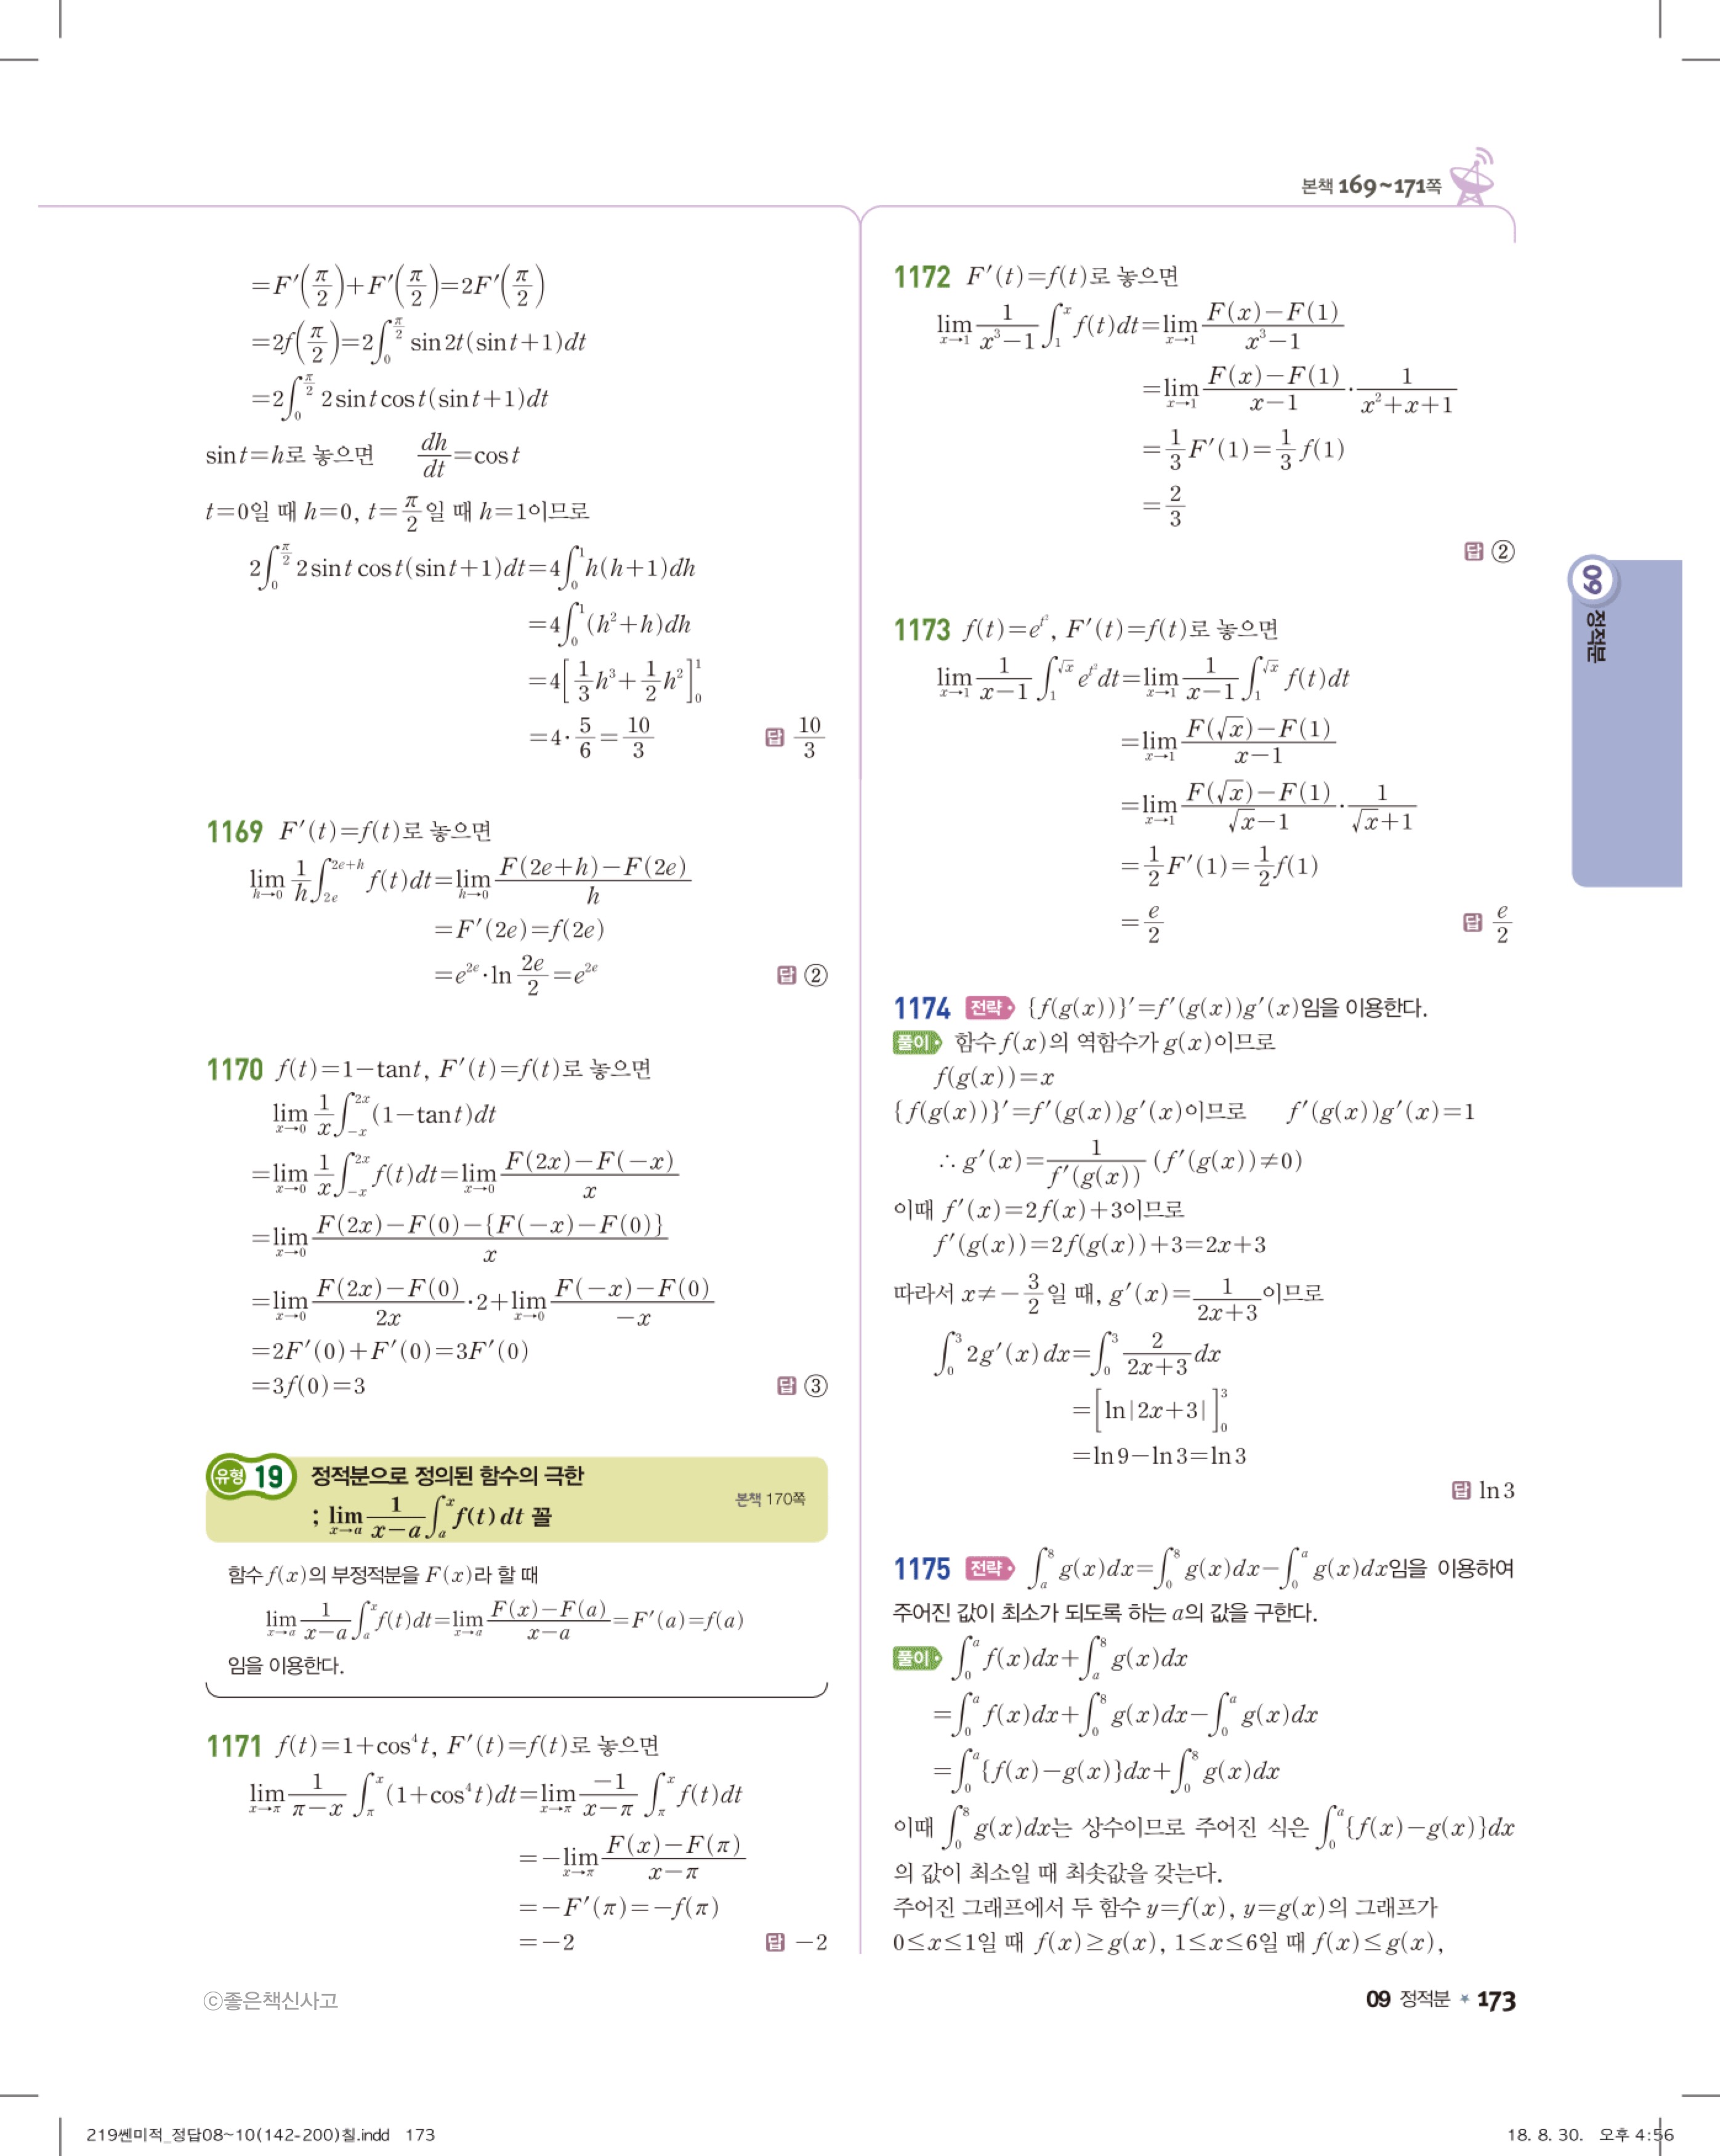 본책 169~171쪽
=F′(π/2)+F′(π/2)=2F′(π/2)
=2f(π/2)=2∫₀^(π/2) sin 2t(sin t+1)dt
=2∫₀^(π/2) 2 sin t cos t(sin t+1)dt
sin t=h로 놓으면 dh/dt=cos t
t=0일 때 h=0, t=π/2일 때 h=1이므로
2∫₀^(π/2) 2 sin t cos t(sin t+1)dt=4∫₀¹ h(h+1)dh
=4∫₀¹ (h²+h)dh
=4[1/3 h³+1/2 h²]₀¹
=4·5/6=10/3 답 10/3
1169 F′(t)=f(t)로 놓으면
lim_(h→0) 1/h ∫_(2e)^(2e+h) f(t)dt=lim_(h→0) (F(2e+h)−F(2e))/h
=F′(2e)=f(2e)
=e^(2e)·ln 2e/2=e^(2e) 답 ②
1170 f(t)=1−tan t, F′(t)=f(t)로 놓으면
lim_(x→0) 1/x ∫_(−x)^(2x) (1−tan t)dt
=lim_(x→0) 1/x ∫_(−x)^(2x) f(t)dt=lim_(x→0) (F(2x)−F(−x))/x
=lim_(x→0) (F(2x)−F(0)−{F(−x)−F(0)})/x
=lim_(x→0) (F(2x)−F(0))/2x·2+lim_(x→0) (F(−x)−F(0))/−x
=2F′(0)+F′(0)=3F′(0)
=3f(0)=3 답 ③
유형 19 정적분으로 정의된 함수의 극한
; lim_(x→a) 1/(x−a) ∫ₐ^x f(t) dt 꼴 본책 170쪽
함수 f(x)의 부정적분을 F(x)라 할 때
lim_(x→a) 1/(x−a) ∫ₐ^x f(t)dt=lim_(x→a) (F(x)−F(a))/(x−a)=F′(a)=f(a)
임을 이용한다.
1171 f(t)=1+cos⁴t, F′(t)=f(t)로 놓으면
lim_(x→π) 1/(π−x) ∫_π^x (1+cos⁴t)dt=lim_(x→π) −1/(x−π) ∫_π^x f(t)dt
=−lim_(x→π) (F(x)−F(π))/(x−π)
=−F′(π)=−f(π)
=−2 답 −2
1172 F′(t)=f(t)로 놓으면
lim_(x→1) 1/(x³−1) ∫₁^x f(t)dt=lim_(x→1) (F(x)−F(1))/(x³−1)
=lim_(x→1) (F(x)−F(1))/(x−1)·1/(x²+x+1)
=1/3 F′(1)=1/3 f(1)
=2/3
답 ②
1173 f(t)=e^(t²), F′(t)=f(t)로 놓으면
lim_(x→1) 1/(x−1) ∫₁^(√x) e^(t²)dt=lim_(x→1) 1/(x−1) ∫₁^(√x) f(t)dt
=lim_(x→1) (F(√x)−F(1))/(x−1)
=lim_(x→1) (F(√x)−F(1))/(√x−1)·1/(√x+1)
=1/2 F′(1)=1/2 f(1)
=e/2 답 e/2
1174 전략 {f(g(x))}′=f′(g(x))g′(x)임을 이용한다.
풀이 함수 f(x)의 역함수가 g(x)이므로
f(g(x))=x
{f(g(x))}′=f′(g(x))g′(x)이므로 f′(g(x))g′(x)=1
∴ g′(x)=1/f′(g(x)) (f′(g(x))≠0)
이때 f′(x)=2f(x)+3이므로
f′(g(x))=2f(g(x))+3=2x+3
따라서 x≠−3/2일 때, g′(x)=1/(2x+3)이므로
∫₀³ 2g′(x)dx=∫₀³ 2/(2x+3) dx
=[ln|2x+3|]₀³
=ln 9−ln 3=ln 3
답 ln 3
1175 전략 ∫ₐ⁸ g(x)dx=∫₀⁸ g(x)dx−∫₀^a g(x)dx임을 이용하여
주어진 값이 최소가 되도록 하는 a의 값을 구한다.
풀이 ∫₀^a f(x)dx+∫ₐ⁸ g(x)dx
=∫₀^a f(x)dx+∫₀⁸ g(x)dx−∫₀^a g(x)dx
=∫₀^a {f(x)−g(x)}dx+∫₀⁸ g(x)dx
이때 ∫₀⁸ g(x)dx는 상수이므로 주어진 식은 ∫₀^a {f(x)−g(x)}dx
의 값이 최소일 때 최솟값을 갖는다.
주어진 그래프에서 두 함수 y=f(x), y=g(x)의 그래프가
0≤x≤1일 때 f(x)≥g(x), 1≤x≤6일 때 f(x)≤g(x),
09 정적분
ⓒ좋은책신사고
09 정적분 * 173
219쎈미적_정답08~10(142-200)칠.indd 173
18. 8. 30. 오후 4:56